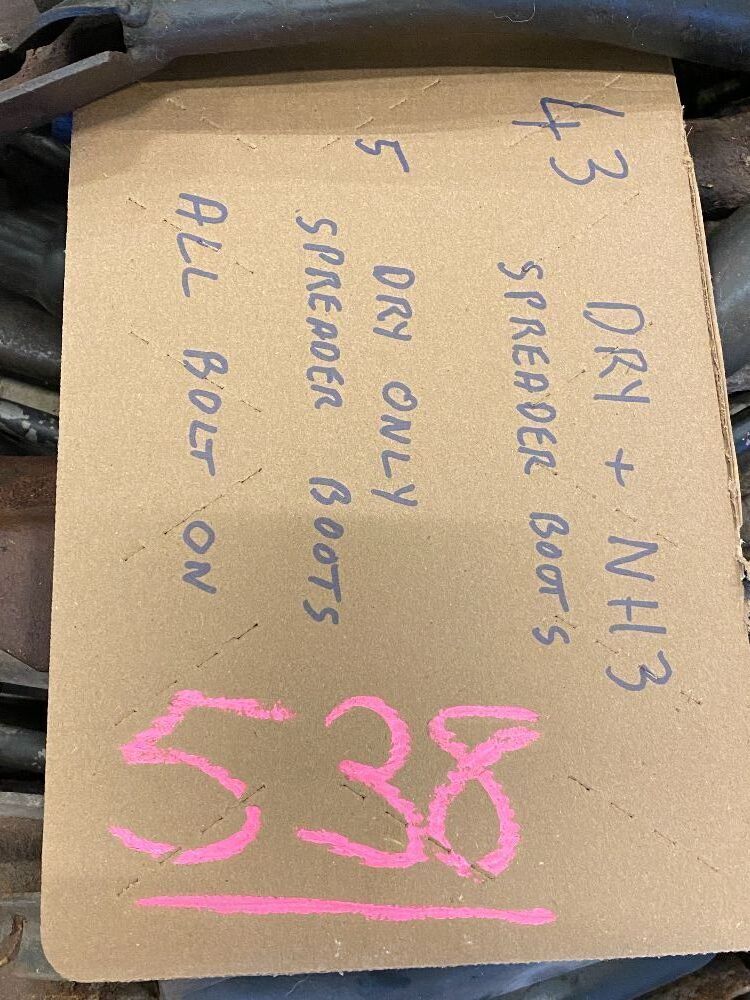 43 DRY + NH3
SPREADER BOOTS
5 DRY ONLY
SPREADER BOOTS
ALL BOLT ON
538